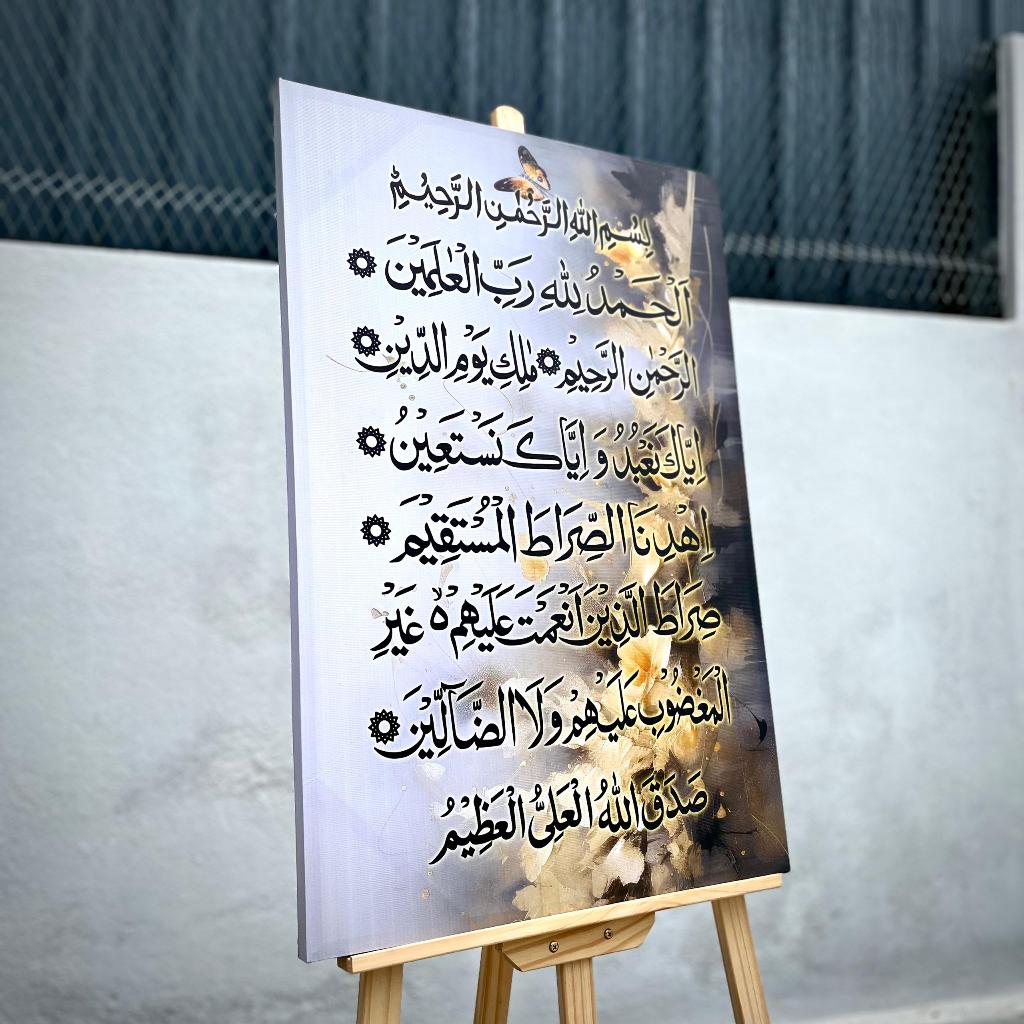 بِسْمِ اللهِ الرَّحْمٰنِ الرَّحِيْمِ
اَلْحَمْدُ لِلّٰهِ رَبِّ الْعٰلَمِيْنَ ۞
الرَّحْمٰنِ الرَّحِيْمِ ۞ مٰلِكِ يَوْمِ الدِّيْنِ ۞
اِيَّاكَ نَعْبُدُ وَ اِيَّاكَ نَسْتَعِيْنُ ۞
اِهْدِنَا الصِّرَاطَ الْمُسْتَقِيْمَ ۞
صِرَاطَ الَّذِيْنَ اَنْعَمْتَ عَلَيْهِمْ ۙ۵ غَيْرِ
الْمَغْضُوْبِ عَلَيْهِمْ وَلَا الضَّآلِّيْنَ ۞
صَدَقَ اللهُ الْعَلِىُّ الْعَظِيْمُ